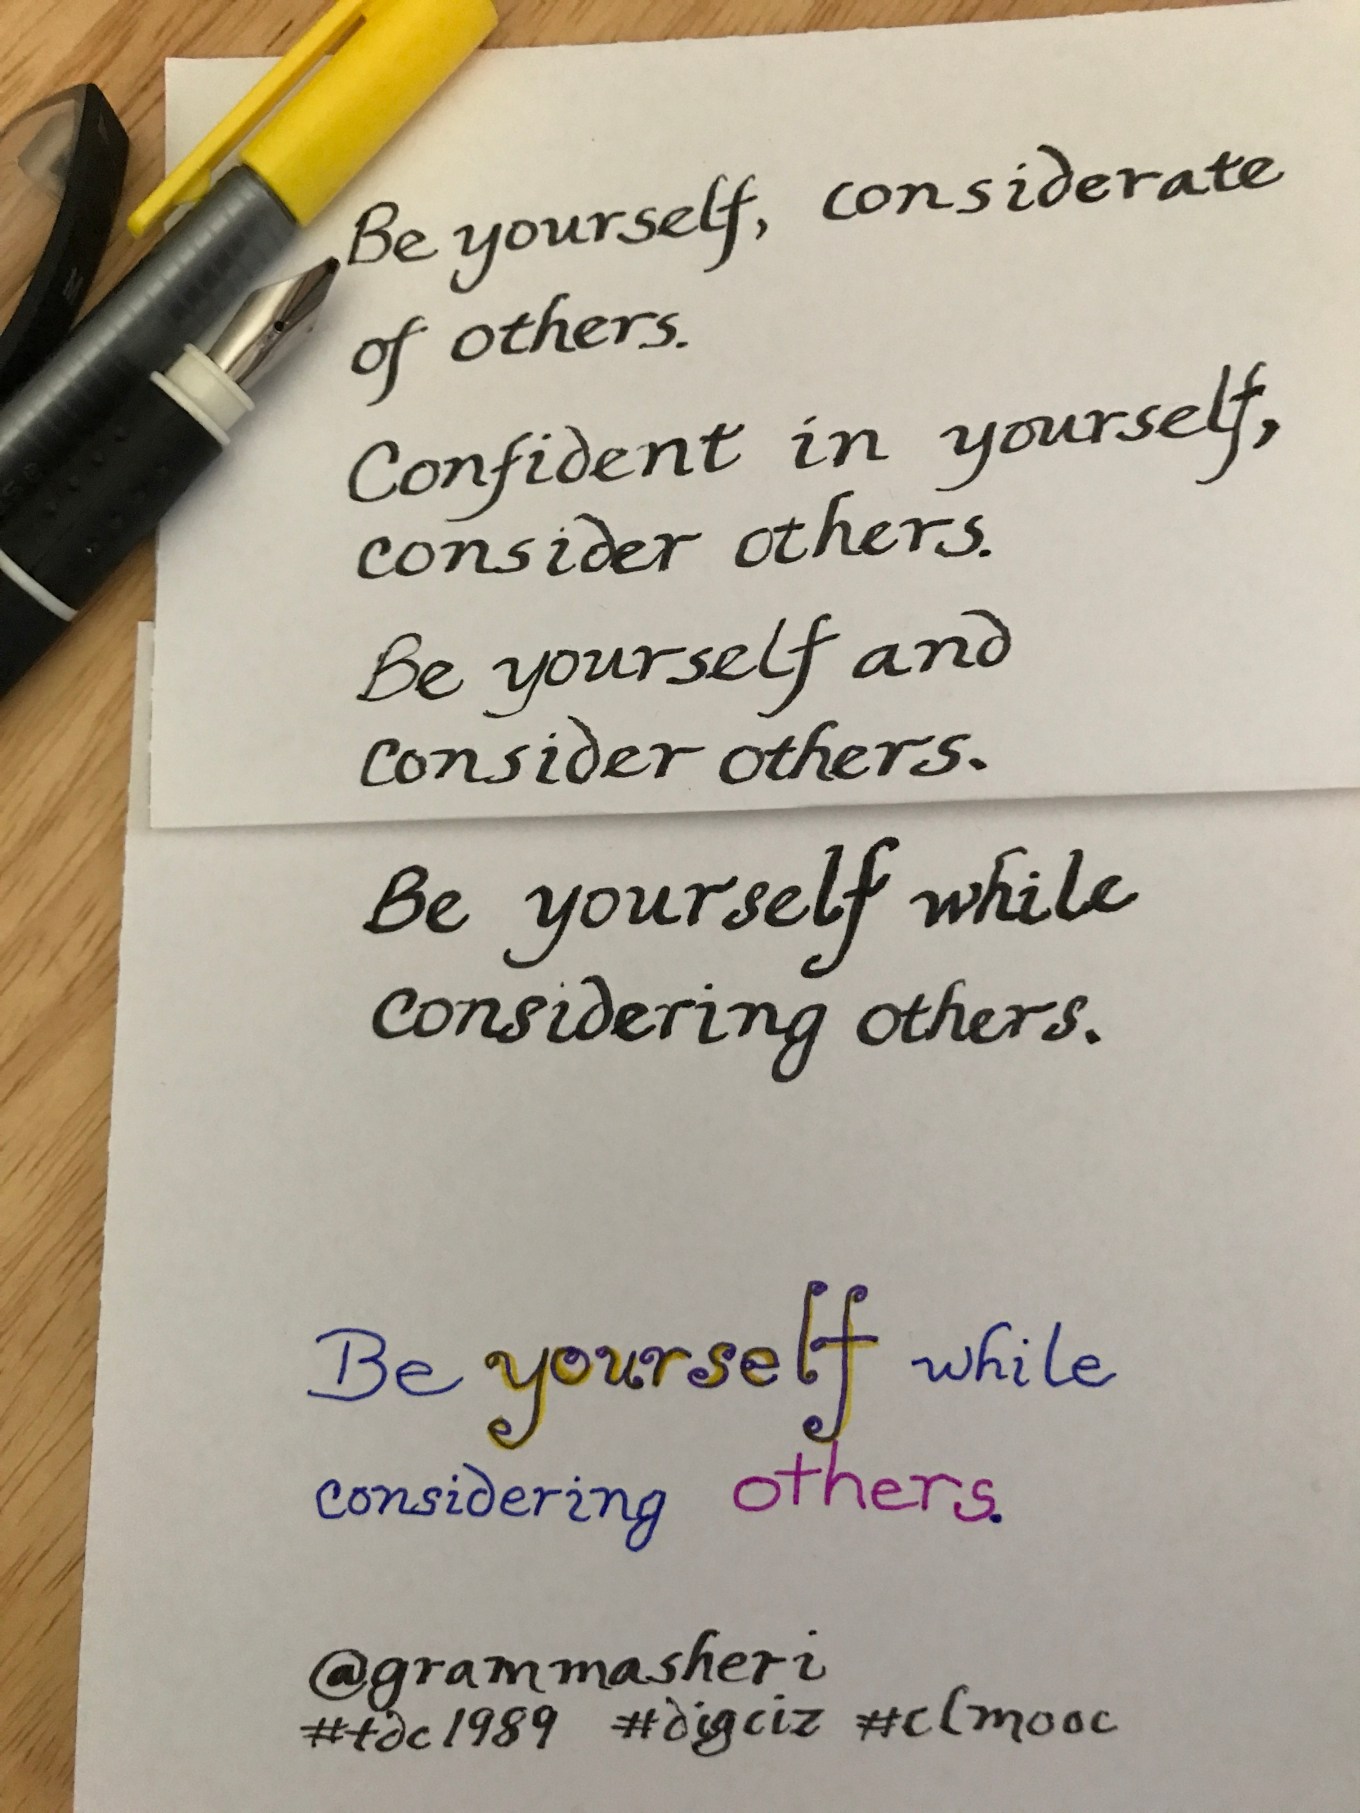 Be yourself, considerate
of others.
Confident in yourself,
consider others.
Be yourself and
consider others.
Be yourself while
considering others.
Be yourself while
considering others.
@grammasheri
#tdc1989 #digciz #clmooc